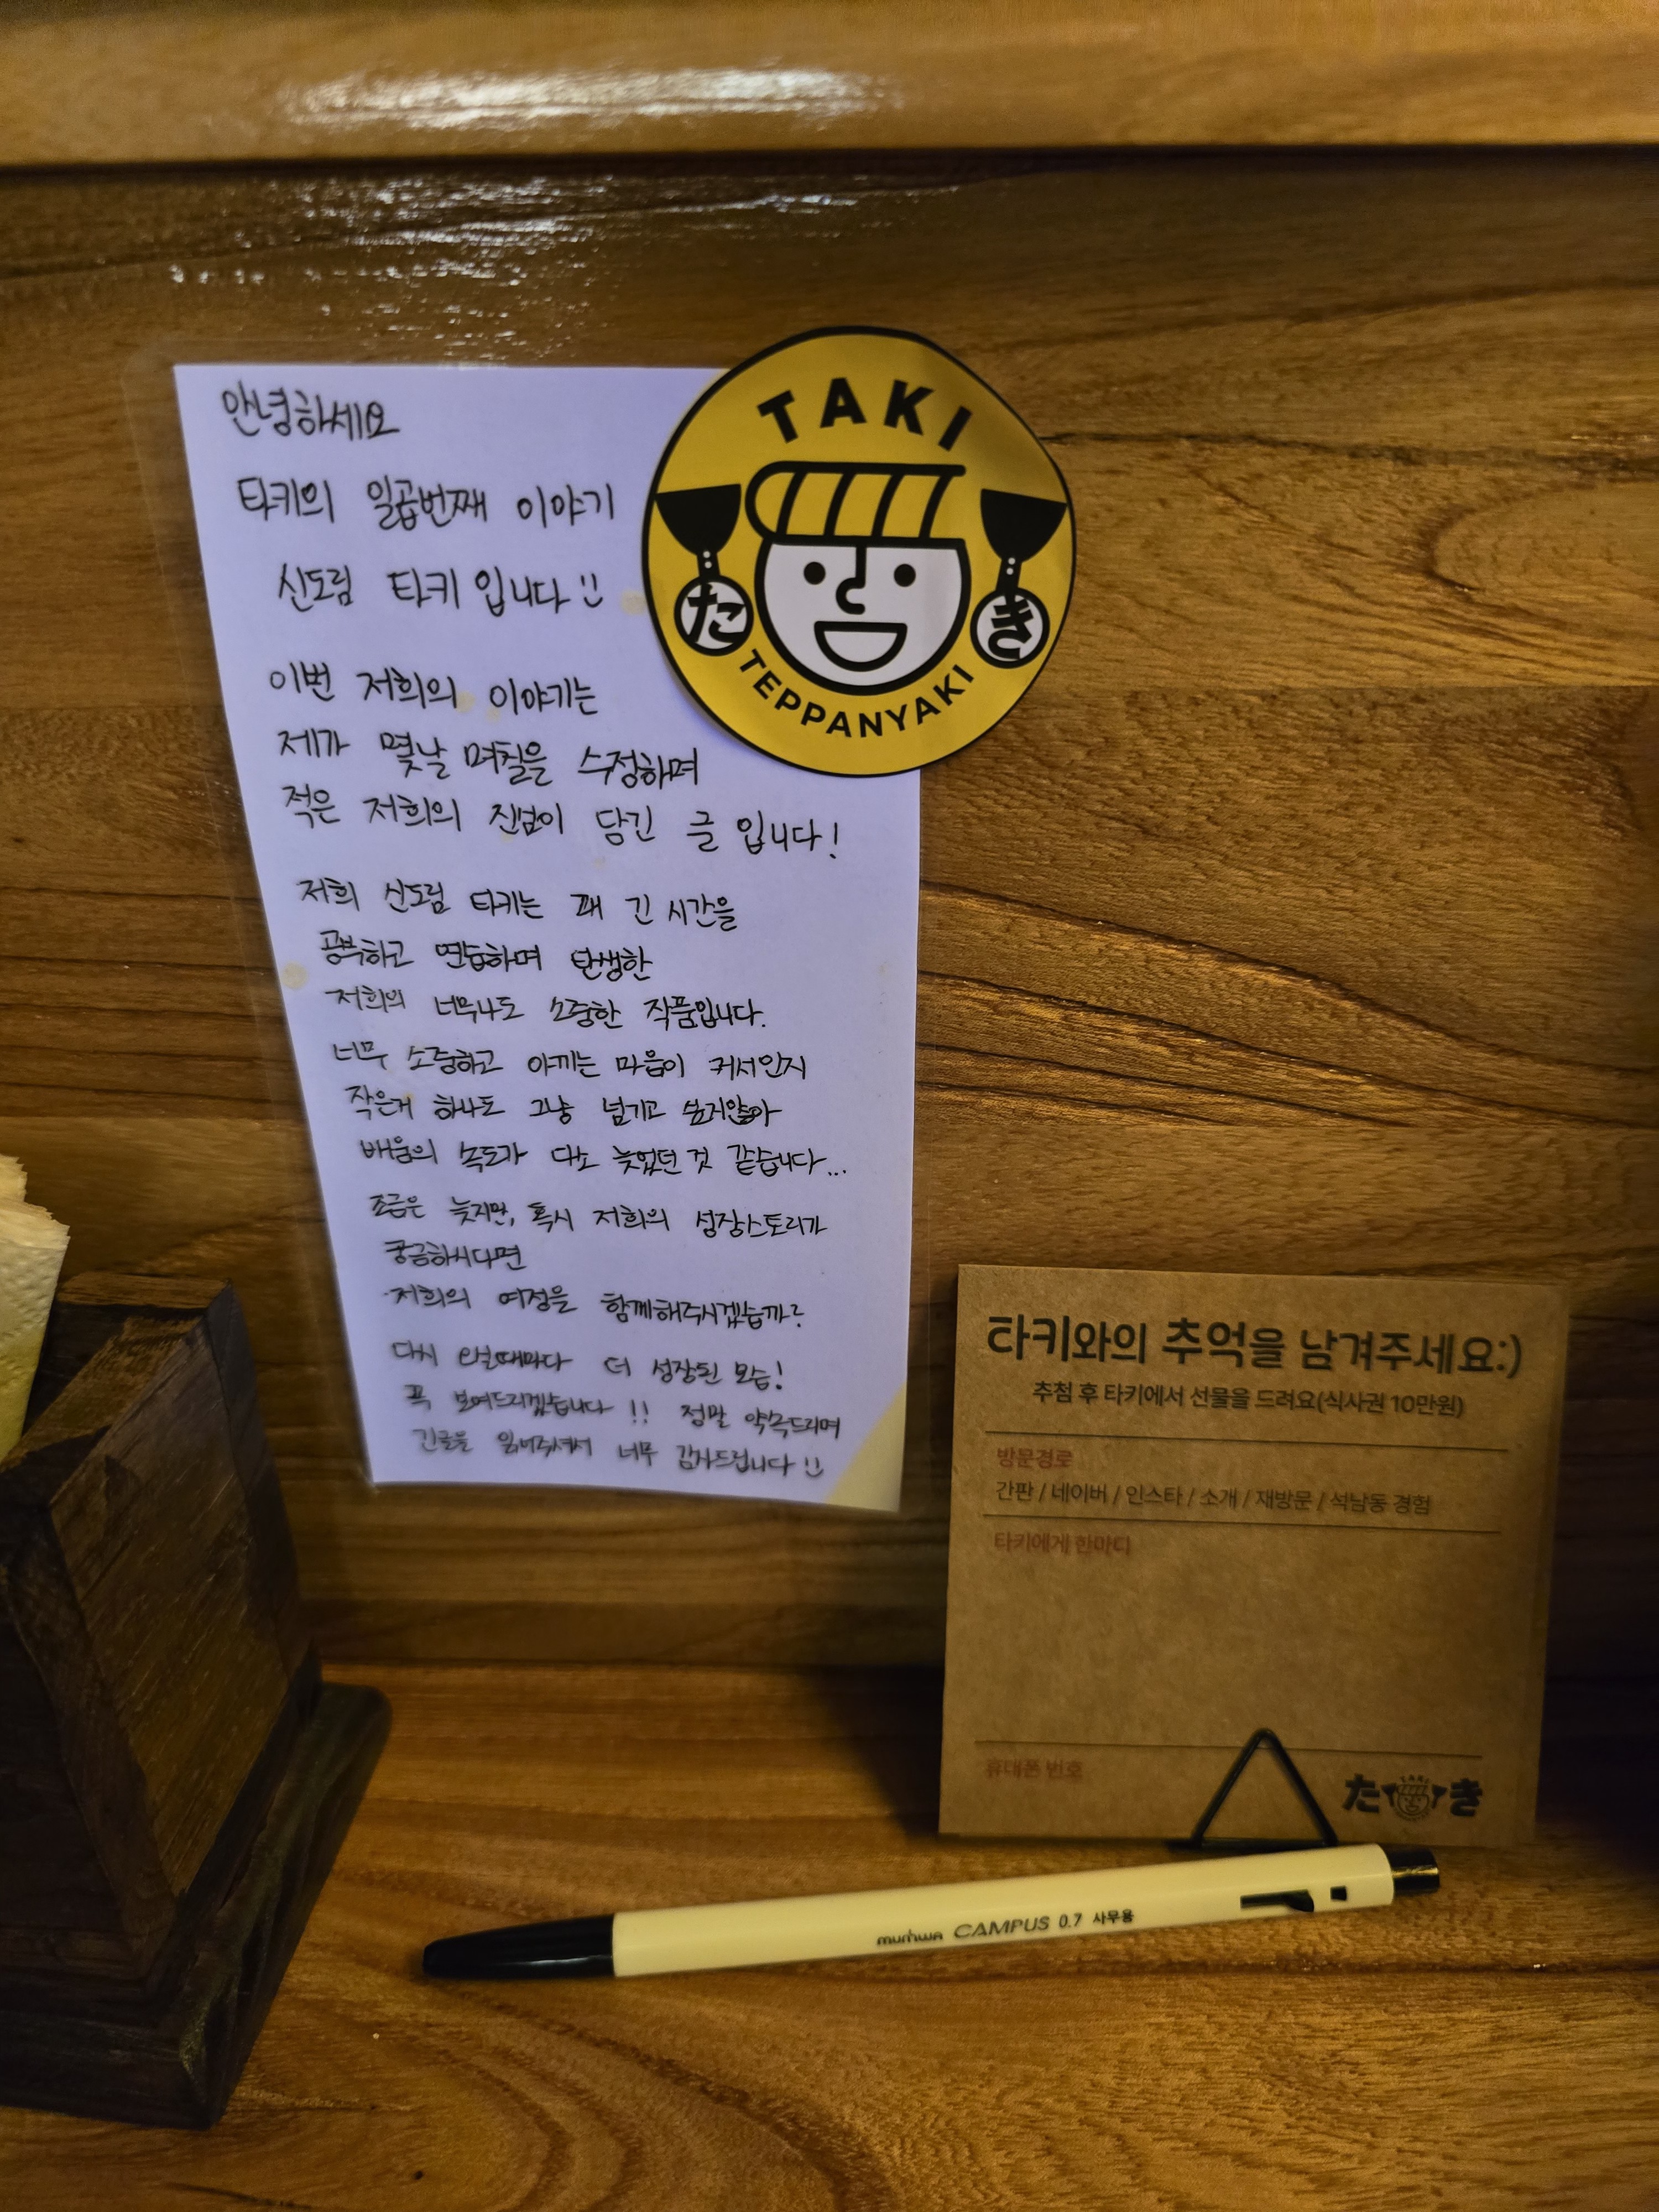 안녕하세요
타키의 일곱번째 이야기
신도림 타키 입니다 :)
이번 저희의 이야기는
제가 몇날 며칠을 수정하며
적은 저희의 진심이 담긴 글 입니다!
저희 신도림 타키는 꽤 긴 시간을
공부하고 연습하며 탄생한
저희의 너무나도 소중한 작품입니다.
너무 소중하고 아끼는 마음이 커서인지
작은거 하나도 그냥 넘기고 싶지않아
배움의 속도가 다소 늦었던 것 같습니다...
조금은 늦지만, 혹시 저희의 성장스토리가
궁금하시다면
저희의 여정을 함께해주시겠습니까?
다시 오실때마다 더 성장된 모습!
꼭 보여드리겠습니다!! 정말 약속드리며
긴글을 읽어주셔서 너무 감사드립니다 :)
TAKI
た き
TEPPANYAKI
타키와의 추억을 남겨주세요:)
추첨 후 타키에서 선물을 드려요(식사권 10만원)
방문경로
간판 / 네이버 / 인스타 / 소개 / 재방문 / 석남동 경험
타키에게 한마디
휴대폰 번호
TAKI
た き
munhwa CAMPUS 0.7 사무용